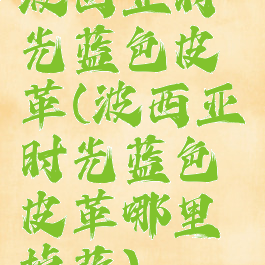 波西亚时
光蓝色皮
革(波西亚
时光蓝色
皮革哪里